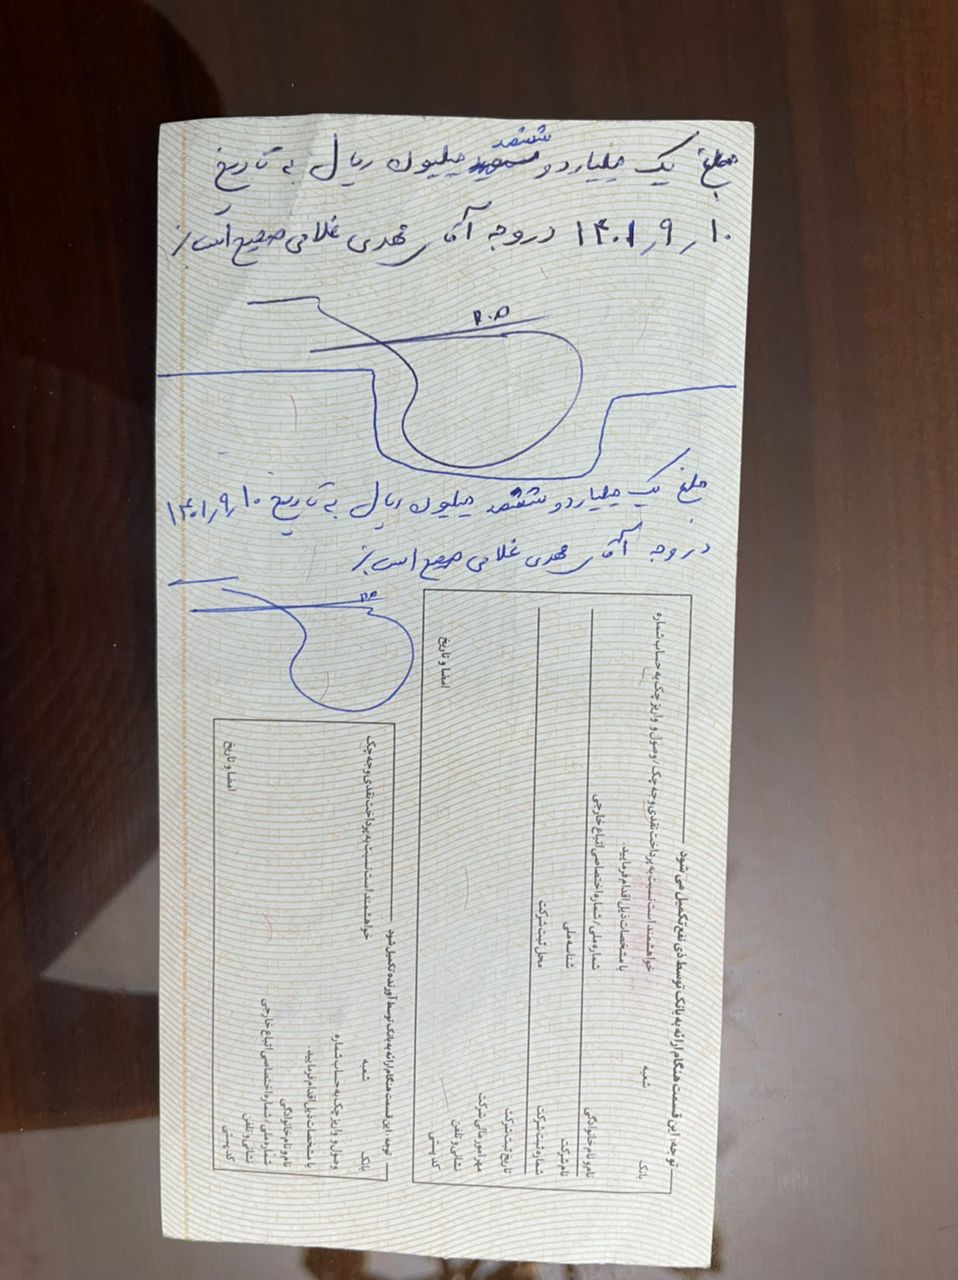 مبلغ یک میلیارد و ششصد میلیون ریال به تاریخ
۱۴۰۱٫۹٫۱۰ در وجه آقای مهدی غلامی صحیح است
مبلغ یک میلیارد و ششصد میلیون ریال به تاریخ ۱۴۰۱٫۹٫۱۰
در وجه آقای مهدی غلامی صحیح است
توجه: این قسمت هنگام ارائه به بانک توسط ذی نفع تکمیل می شود
بانک شعبه
خواهشمند است نسبت به پرداخت نقدی وجه چک / وصول و واریز چک به حساب شماره
با مشخصات ذیل اقدام فرمایید.
نام و نام خانوادگی شماره ملی / شماره اختصاصی اتباع خارجی
نام شرکت شناسه ملی
شماره ثبت شرکت محل ثبت شرکت
تاریخ ثبت شرکت
مهر امور مالی شرکت
نشانی و تلفن
کد پستی امضا و تاریخ
توجه: این قسمت هنگام ارائه به بانک توسط آورنده تکمیل شود
بانک شعبه خواهشمند است نسبت به پرداخت نقدی وجه چک
وصول و واریز چک به حساب شماره
با مشخصات ذیل اقدام فرمایید.
نام و نام خانوادگی
شماره ملی / شماره اختصاصی اتباع خارجی
نشانی و تلفن
کد پستی امضا و تاریخ